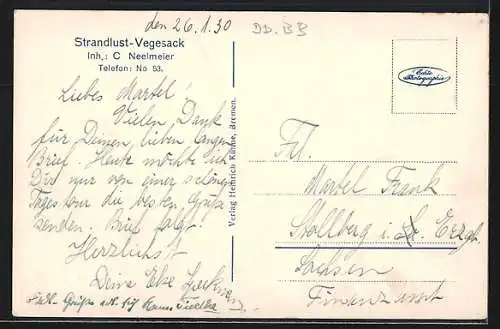 den 26.1.30
DD.BB
Strandlust-Vegesack
Inh.: C Neelmeier
Telefon: No 53.
Liebes Martel!
Vielen Dank
für Deinen lieben langen
Brief. Heute möchte ich
Dir nur von einer schönen
Tagestour die besten Grüße
senden. Brief folgt.
Herzlichst
Deine Else
Verlag Heinrich Kühne, Bremen.
Echte
Photographie
Frl.
Martel Frank
Stollberg i. Erzgb.
Sachsen
Finanzamt